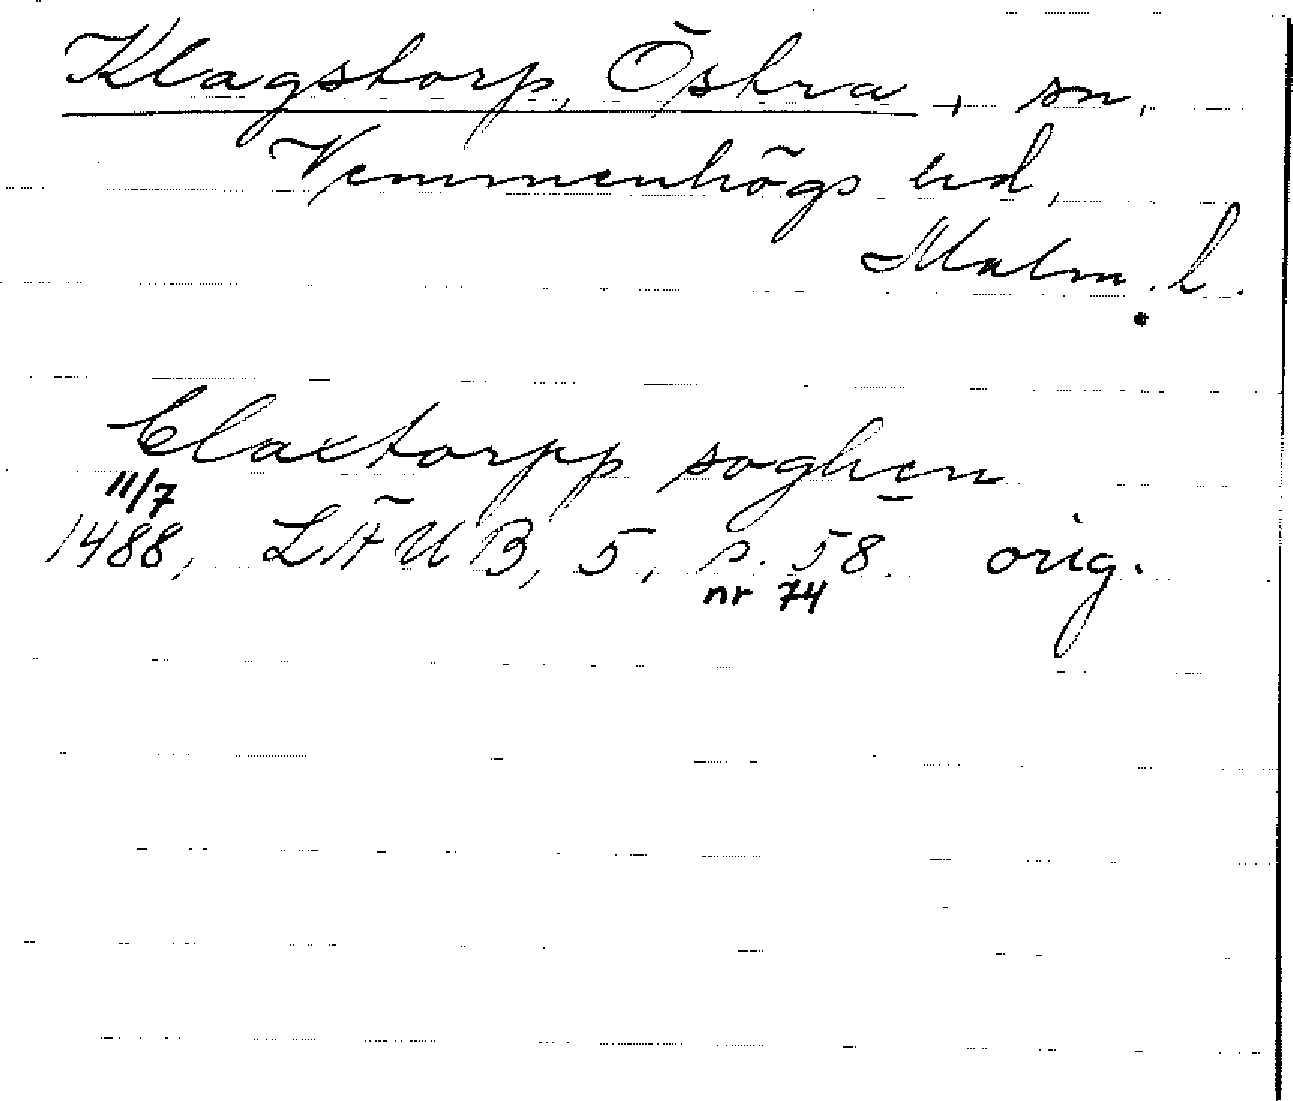 Klagstorp, Östra, sn,
Vemmenhögs hd,
Malm. l.
Claxtorpp soghen
11/7
1488, LÄUB, 5, s. 58. orig.
nr 74